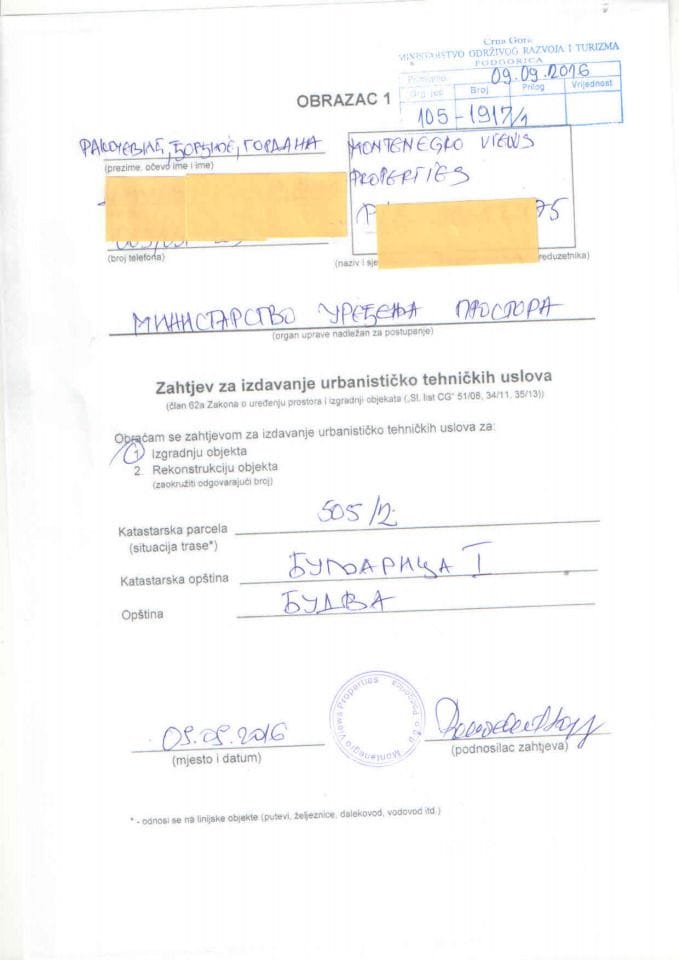 Crna Gora
MINISTARSTVO ODRŽIVOG RAZVOJA I TURIZMA
PODGORICA
Primljeno: 09.09.2016
Org. jed. Broj Prilog Vrijednost
105-1917/1
OBRAZAC 1
РАКОЧЕВИЋ, ЂОРЂИЈЕ, ГОРДАНА
(prezime, očevo ime i ime)
MONTENEGRO VIEWS
PROPERTIES
75
(broj telefona)
(naziv i sje
reduzetnika)
МИНИСТАРСТВО УРЕЂЕЊА ПРОСТОРА
(organ uprave nadležan za postupanje)
Zahtjev za izdavanje urbanističko tehničkih uslova
(član 62a Zakona o uređenju prostora i izgradnji objekata („Sl. list CG“ 51/08, 34/11, 35/13))
Obraćam se zahtjevom za izdavanje urbanističko tehničkih uslova za:
1. Izgradnju objekta
2. Rekonstrukciju objekta
(zaokružiti odgovarajući broj)
Katastarska parcela 505/2
(situacija trase*)
Katastarska opština БУЉАРИЦА I
Opština БУДВА
Montenegro Views Properties d.o.o Podgorica
09.09.2016
(mjesto i datum)
(podnosilac zahtjeva)
* - odnosi se na linijske objekte (putevi, željeznice, dalekovod, vodovod itd.)